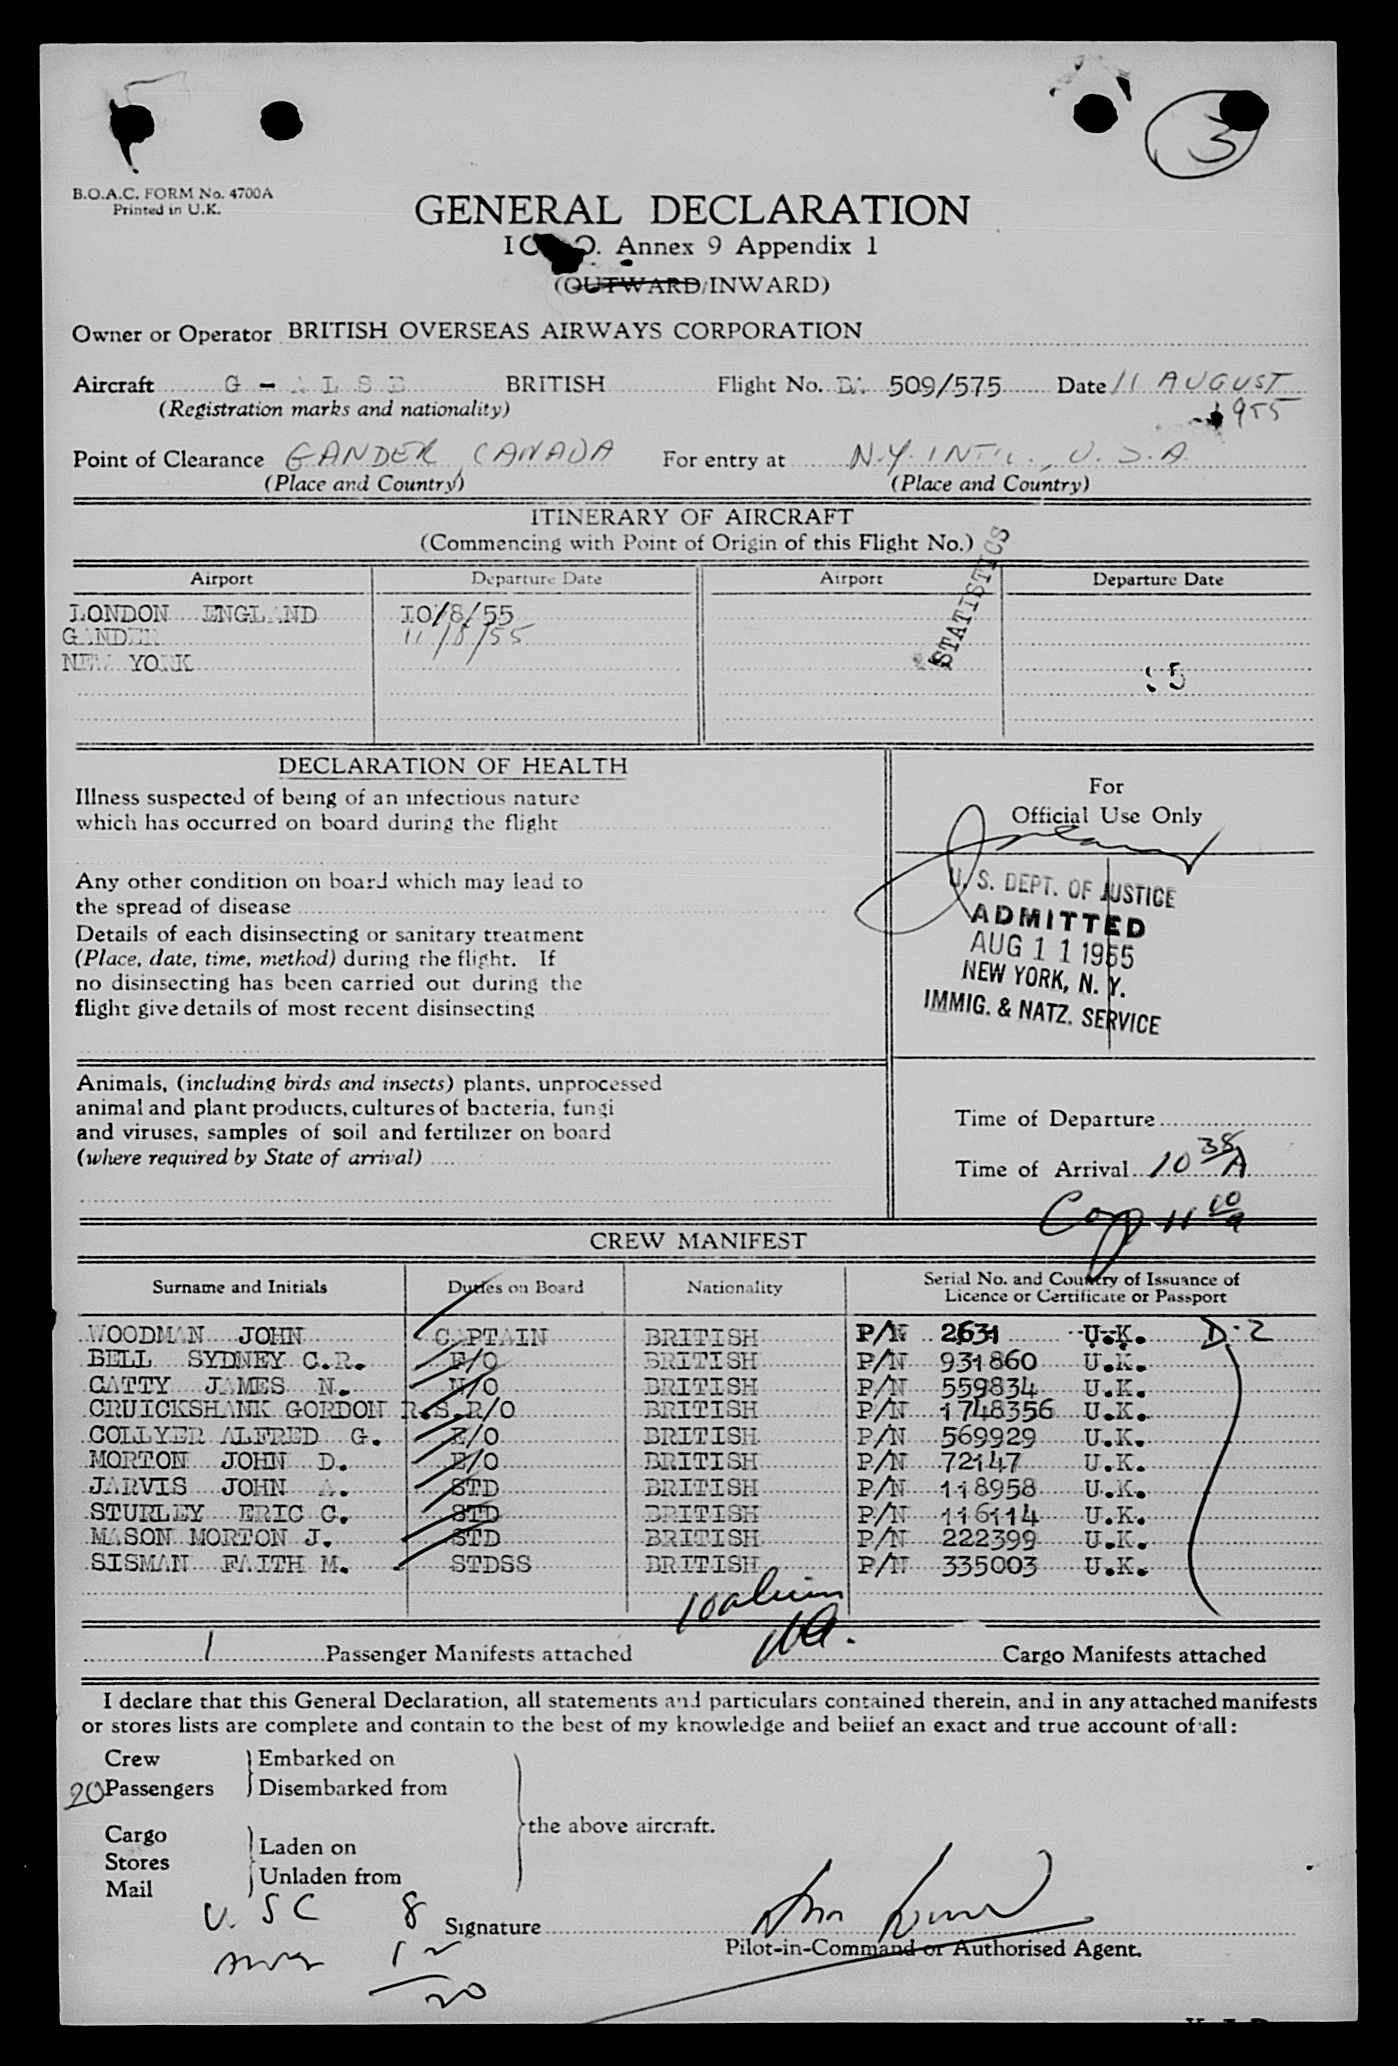 3
B.O.A.C. FORM No. 4700A
Printed in U.K.
GENERAL DECLARATION
I C O. Annex 9 Appendix 1
(OUTWARD/INWARD)
Owner or Operator BRITISH OVERSEAS AIRWAYS CORPORATION
Aircraft BRITISH Flight No. BA 509/575 Date 11 AUGUST
(Registration marks and nationality) 1955
Point of Clearance GANDER, CANADA For entry at N.Y. INT'L., U.S.A.
(Place and Country) (Place and Country)
ITINERARY OF AIRCRAFT
(Commencing with Point of Origin of this Flight No.)
STATISTICS
Airport Departure Date Airport Departure Date
LONDON ENGLAND 10/8/55
GANDER 11/8/55
NEW YORK
55
DECLARATION OF HEALTH
For
Official Use Only
Illness suspected of being of an infectious nature
which has occurred on board during the flight
Any other condition on board which may lead to
the spread of disease
Details of each disinsecting or sanitary treatment
(Place, date, time, method) during the flight. If
no disinsecting has been carried out during the
flight give details of most recent disinsecting
U.S. DEPT. OF JUSTICE
ADMITTED
AUG 11 1955
NEW YORK, N.Y.
IMMIG. & NATZ. SERVICE
Animals, (including birds and insects) plants, unprocessed
animal and plant products, cultures of bacteria, fungi
and viruses, samples of soil and fertilizer on board
(where required by State of arrival)
Time of Departure
Time of Arrival 10 38 A
CREW MANIFEST
Surname and Initials Duties on Board Nationality Serial No. and Country of Issuance of
Licence or Certificate or Passport
WOODMAN JOHN CAPTAIN BRITISH P/N 2631 U.K. D-2
BELL SYDNEY C.R. F/O BRITISH P/N 931860 U.K.
CATTY JAMES N. N/O BRITISH P/N 559834 U.K.
CRUICKSHANK GORDON R.S. R/O BRITISH P/N 1748356 U.K.
COLLYER ALFRED G. E/O BRITISH P/N 569929 U.K.
MORTON JOHN D. E/O BRITISH P/N 72147 U.K.
JARVIS JOHN A. STD BRITISH P/N 118958 U.K.
STURLEY ERIC C. STD BRITISH P/N 116114 U.K.
MASON MORTON J. STD BRITISH P/N 222399 U.K.
SISMAN FAITH M. STDSS BRITISH P/N 335003 U.K.
10 aliens
1 Passenger Manifests attached Cargo Manifests attached
I declare that this General Declaration, all statements and particulars contained therein, and in any attached manifests
or stores lists are complete and contain to the best of my knowledge and belief an exact and true account of all:
Crew Embarked on
20 Passengers Disembarked from
the above aircraft.
Cargo
Stores Laden on
Mail Unladen from
USC 8
Signature
12
20
Pilot-in-Command or Authorised Agent.